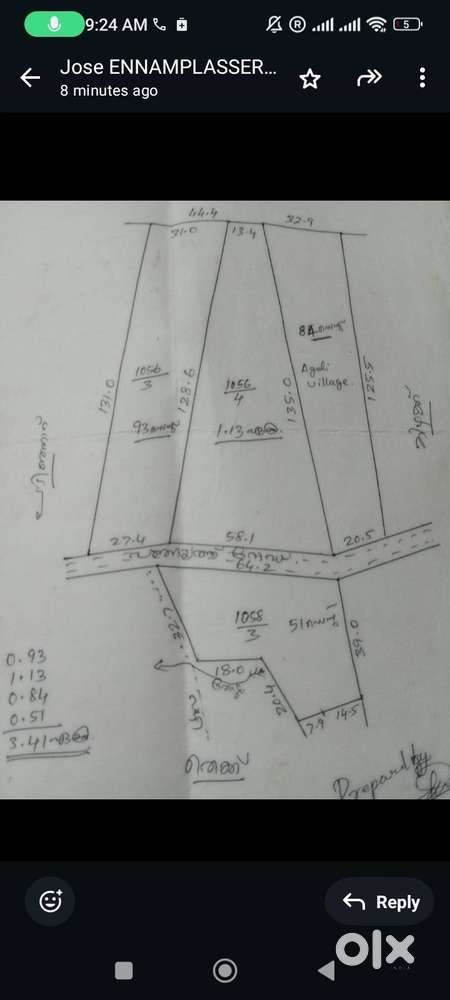 9:24 AM
5
Jose ENNAMPLASSER...
8 minutes ago
44.4
31.0
13.4
32.9
84 സെന്റ്
Agali
village.
1056
3
131.0
128.9
1056
4
135.0
125.5
93 സെന്റ്
1.13 ഏക്കർ
27.4
58.1
20.5
64.2
32.7
1058
3
51 സെന്റ്
39.0
18.0
20.4
7.9
14.5
0.93
1.13
0.84
0.51
3.41 ഏക്കർ
തെക്ക്
Prepared by
Reply
olx